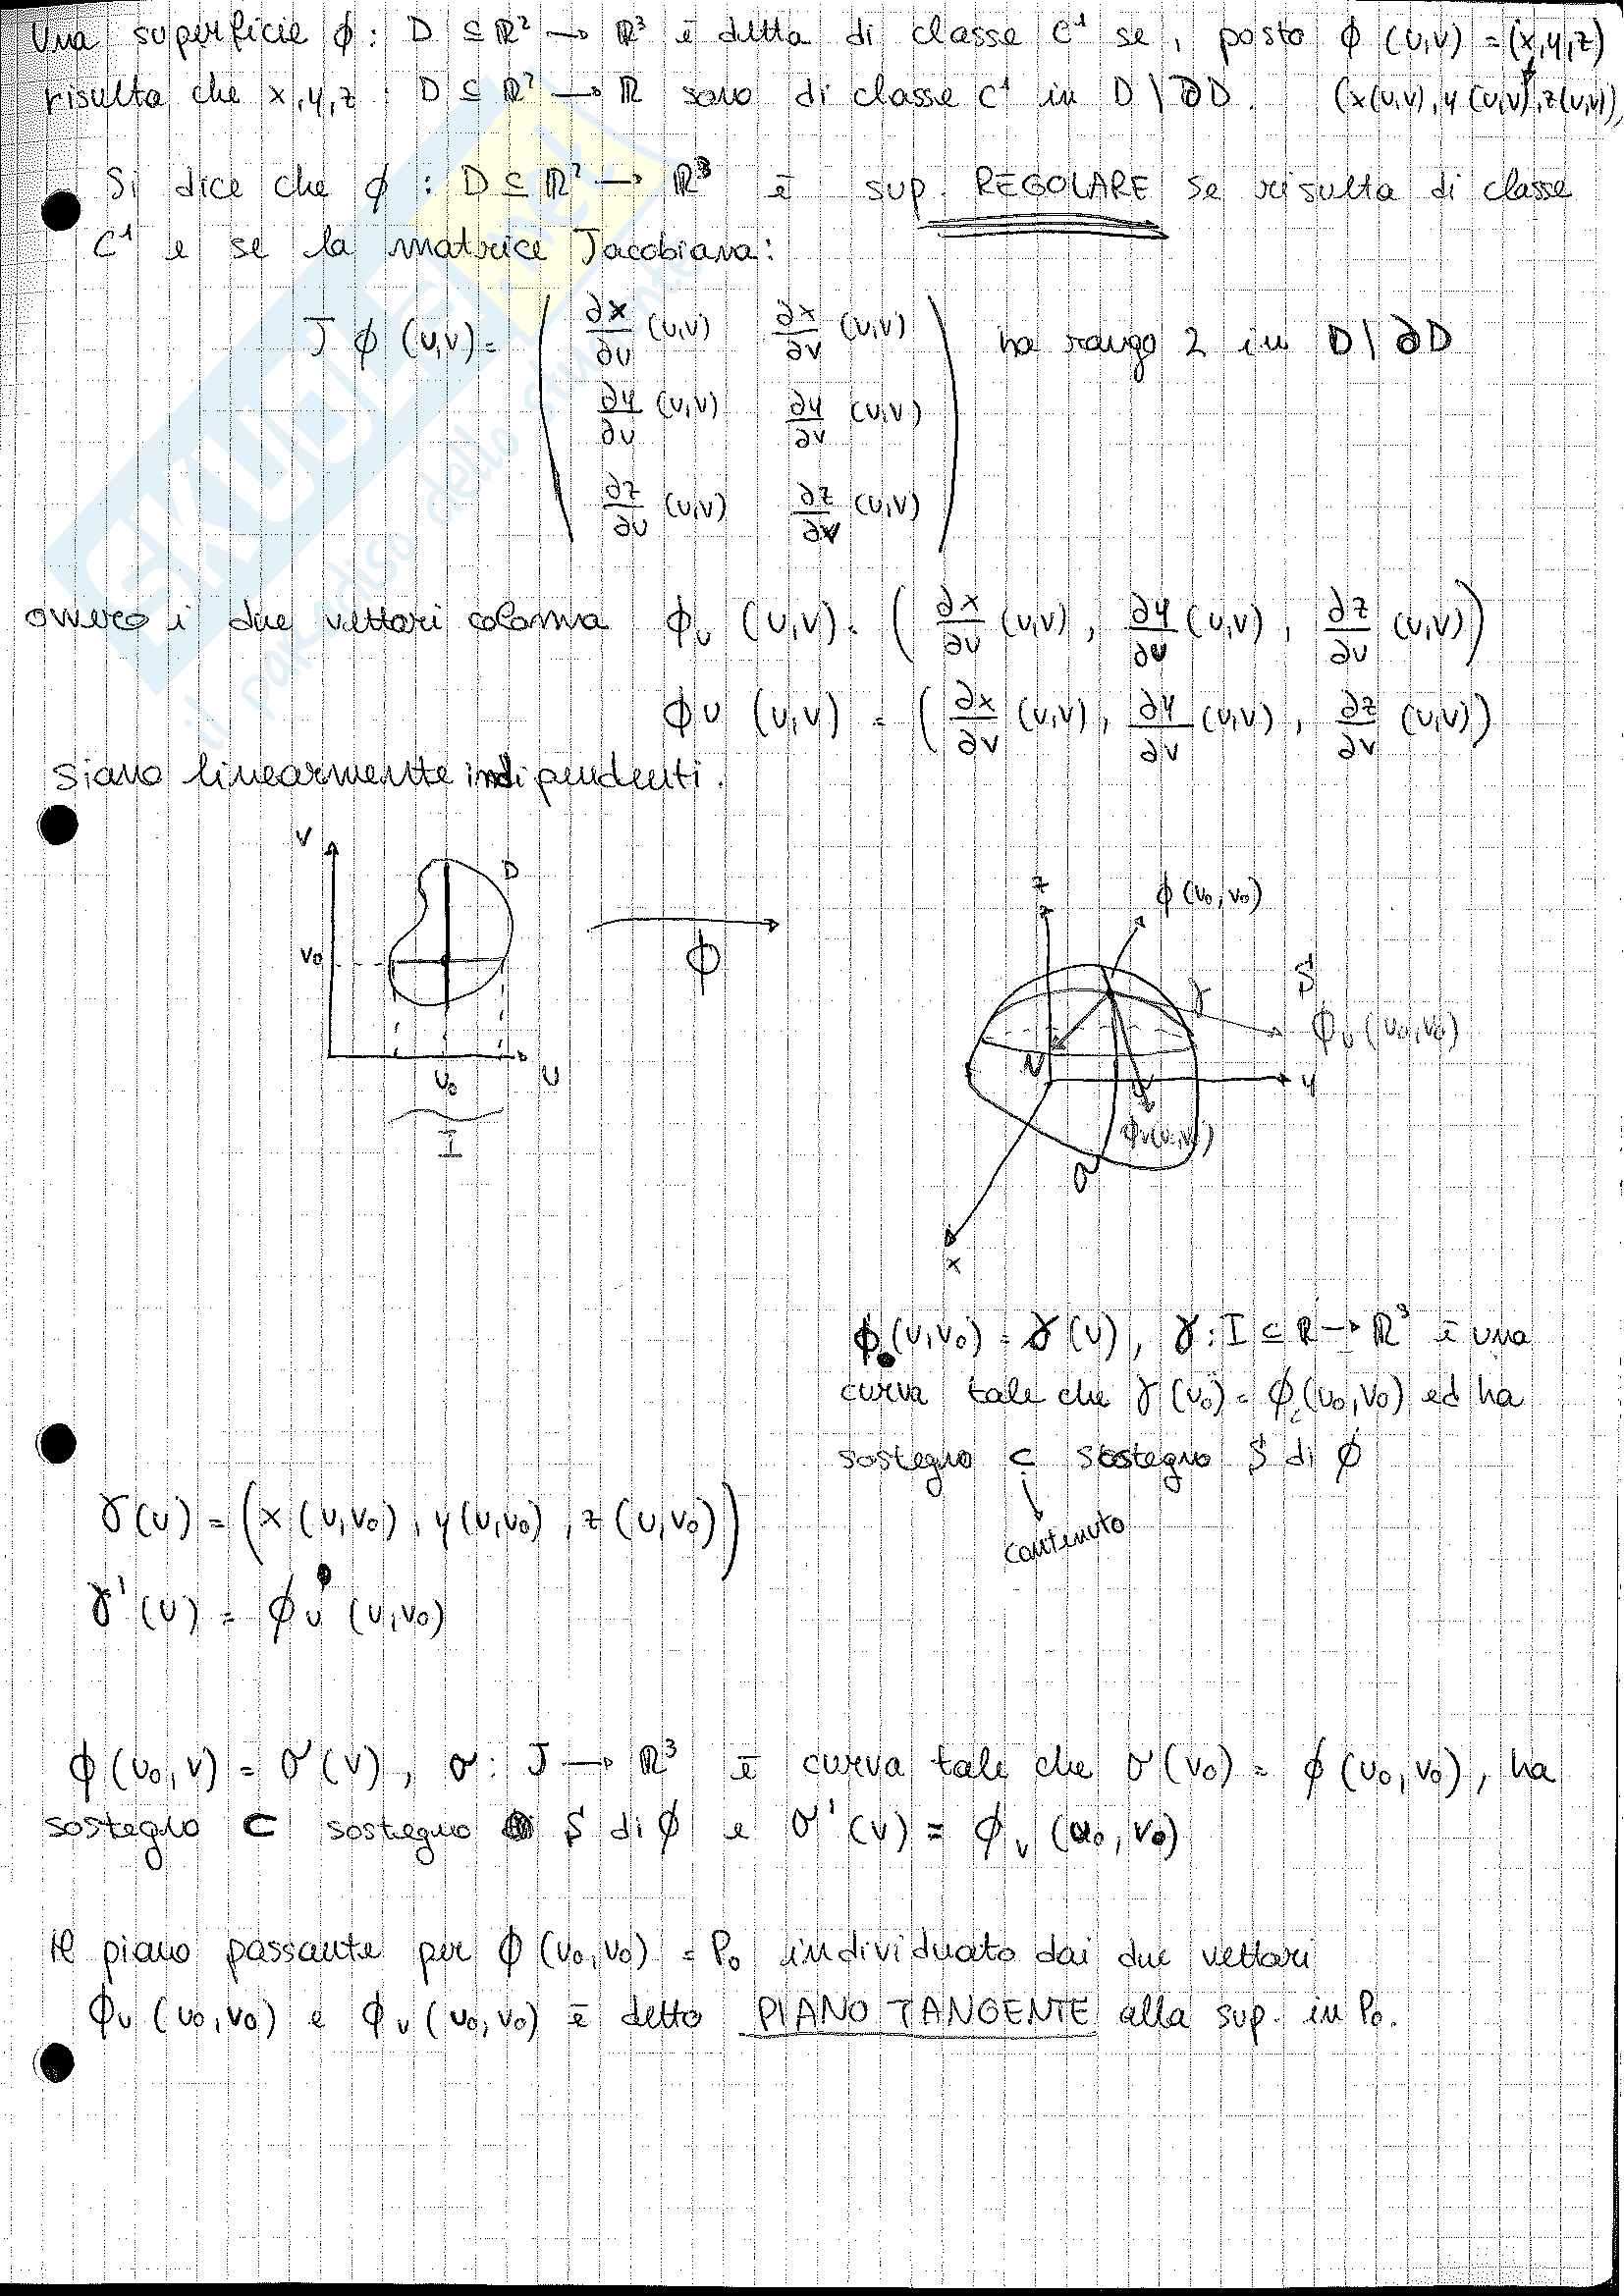 Una superficie φ : D ⊆ ℝ² → ℝ³ è detta di classe C¹ se, posto φ (u,v) = (x,y,z)
risulta che x,y,z : D ⊆ ℝ² → ℝ sono di classe C¹ in D \ ∂D. (x(u,v), y(u,v), z(u,v))
Si dice che φ : D ⊆ ℝ² → ℝ³ è sup. REGOLARE se risulta di classe
C¹ e se la matrice Jacobiana:
J φ (u,v) = ( ∂x/∂u (u,v) ∂x/∂v (u,v)
∂y/∂u (u,v) ∂y/∂v (u,v)
∂z/∂u (u,v) ∂z/∂v (u,v) ) ha rango 2 in D \ ∂D
ovvero i due vettori colonna φu (u,v) = ( ∂x/∂u (u,v), ∂y/∂u (u,v), ∂z/∂u (u,v) )
φv (u,v) = ( ∂x/∂v (u,v), ∂y/∂v (u,v), ∂z/∂v (u,v) )
siano linearmente indipendenti.
v
D
v₀
u₀
u
I
φ
z
φ (u₀, v₀)
S
γ
φu (u₀, v₀)
N
y
φv(u₀,v₀)
σ
x
φ (u,v₀) = γ (u), γ : I ⊆ ℝ → ℝ³ è una
curva tale che γ (u₀) = φ (u₀, v₀) ed ha
sostegno ⊂ sostegno S di φ
contenuto
γ(u) = (x (u,v₀), y(u,v₀), z (u,v₀))
γ' (u) = φu (u,v₀)
φ (u₀, v) = σ (v), σ : J → ℝ³ è curva tale che σ (v₀) = φ (u₀, v₀), ha
sostegno ⊂ sostegno S di φ e σ' (v) = φv (u₀, v₀)
Il piano passante per φ (u₀, v₀) = P₀ individuato dai due vettori
φu (u₀, v₀) e φv (u₀, v₀) è detto PIANO TANGENTE alla sup. in P₀.